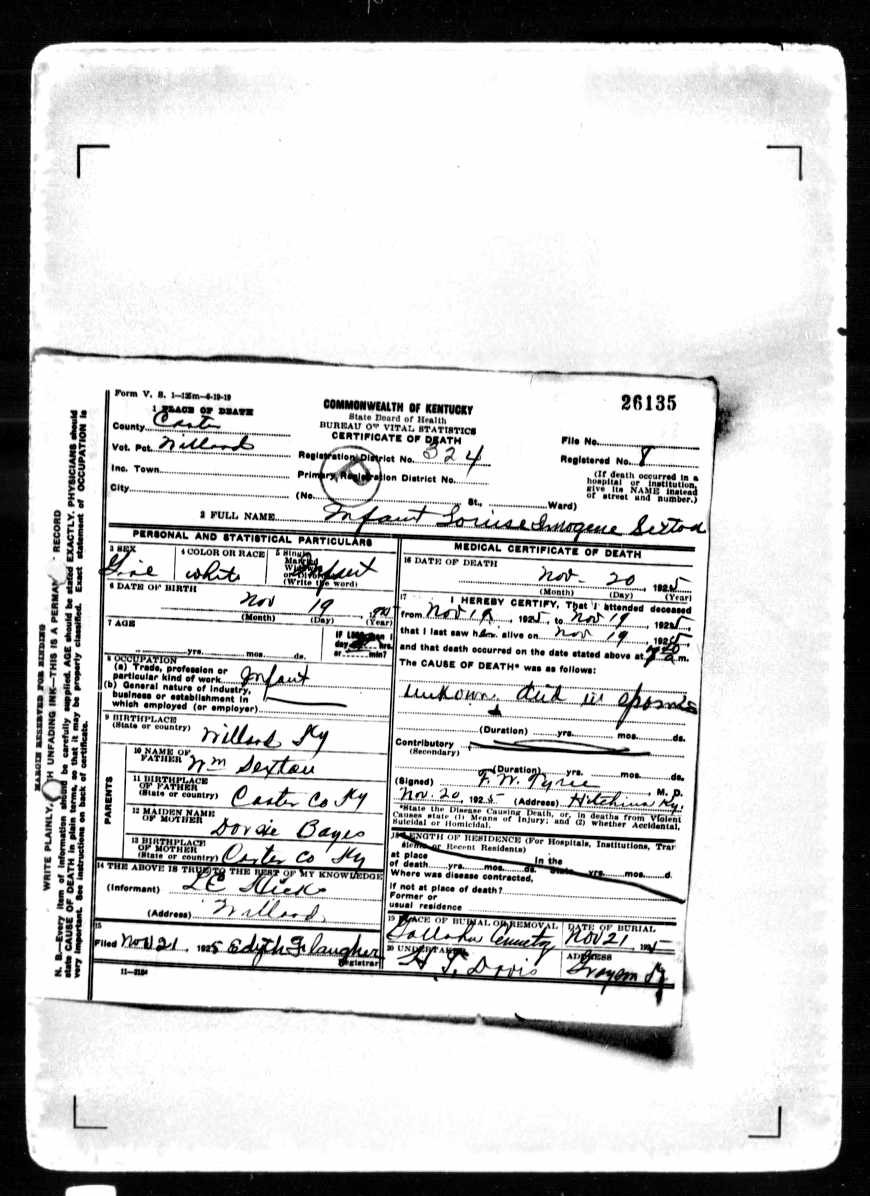 Form V. S. 1—125m—6-19-19
26135
COMMONWEALTH OF KENTUCKY
State Board of Health
BUREAU OF VITAL STATISTICS
CERTIFICATE OF DEATH
1 PLACE OF DEATH
County Carter
Vot. Pct. Willard
Inc. Town
City
Registration District No. 324
Primary Registration District No.
(No. St., Ward)
File No.
Registered No. 8
(If death occurred in a
hospital or institution,
give its NAME instead
of street and number.)
2 FULL NAME Infant Louise Imogene Sexton
PERSONAL AND STATISTICAL PARTICULARS
3 SEX Girl
4 COLOR OR RACE white
5 Single
Married
Widowed
or Divorced
(Write the word)
Infant
6 DATE OF BIRTH
Nov 19, 1925
(Month) (Day) (Year)
7 AGE
yrs. mos. ds.
If LESS than 1
day hrs.
or min?
8 OCCUPATION
(a) Trade, profession or
particular kind of work Infant
(b) General nature of industry,
business or establishment in
which employed (or employer)
9 BIRTHPLACE
(State or country) Willard Ky
PARENTS
10 NAME OF
FATHER Wm Sexton
11 BIRTHPLACE
OF FATHER
(State or country) Carter Co Ky
12 MAIDEN NAME
OF MOTHER Bayes
13 BIRTHPLACE
OF MOTHER
(State or country) Carter co Ky
14 THE ABOVE IS TRUE TO THE BEST OF MY KNOWLEDGE
(Informant) Hicks
(Address) Willard
15
Filed Nov 21, 1925 Edyth Flaugher
Registrar
11—3184
MEDICAL CERTIFICATE OF DEATH
16 DATE OF DEATH
Nov- 20, 1925
(Month) (Day) (Year)
17 I HEREBY CERTIFY, That I attended deceased
from Nov 19, 1925, to Nov 19, 1925,
that I last saw h alive on Nov 19, 1925
and that death occurred on the date stated above at a m.
The CAUSE OF DEATH* was as follows:
unkown. died in spasms
(Duration) yrs. mos. ds.
Contributory
(Secondary)
(Duration) yrs. mos. ds.
(Signed) F. W. M. D.
Nov. 20, 1925 (Address) Hitchins Ky.
*State the Disease Causing Death, or, in deaths from Violent
Causes state (1) Means of Injury; and (2) whether Accidental,
Suicidal or Homicidal.
18 LENGTH OF RESIDENCE (For Hospitals, Institutions, Tran
sients or Recent Residents)
at place In the
of death yrs. mos. ds. State yrs. mos. d.
Where was disease contracted,
if not at place of death?
Former or
usual residence
19 PLACE OF BURIAL OR REMOVAL DATE OF BURIAL
Cemetery Nov 21, 1925
20 UNDERTAKER ADDRESS
H. T. Davis Grayson Ky
MARGIN RESERVED FOR BINDING
WRITE PLAINLY, WITH UNFADING INK—THIS IS A PERMANENT RECORD
N. B.—Every item of information should be carefully supplied. AGE should be stated EXACTLY. PHYSICIANS should
state CAUSE OF DEATH in plain terms, so that it may be properly classified. Exact statement of OCCUPATION is
very important. See instructions on back of certificate.